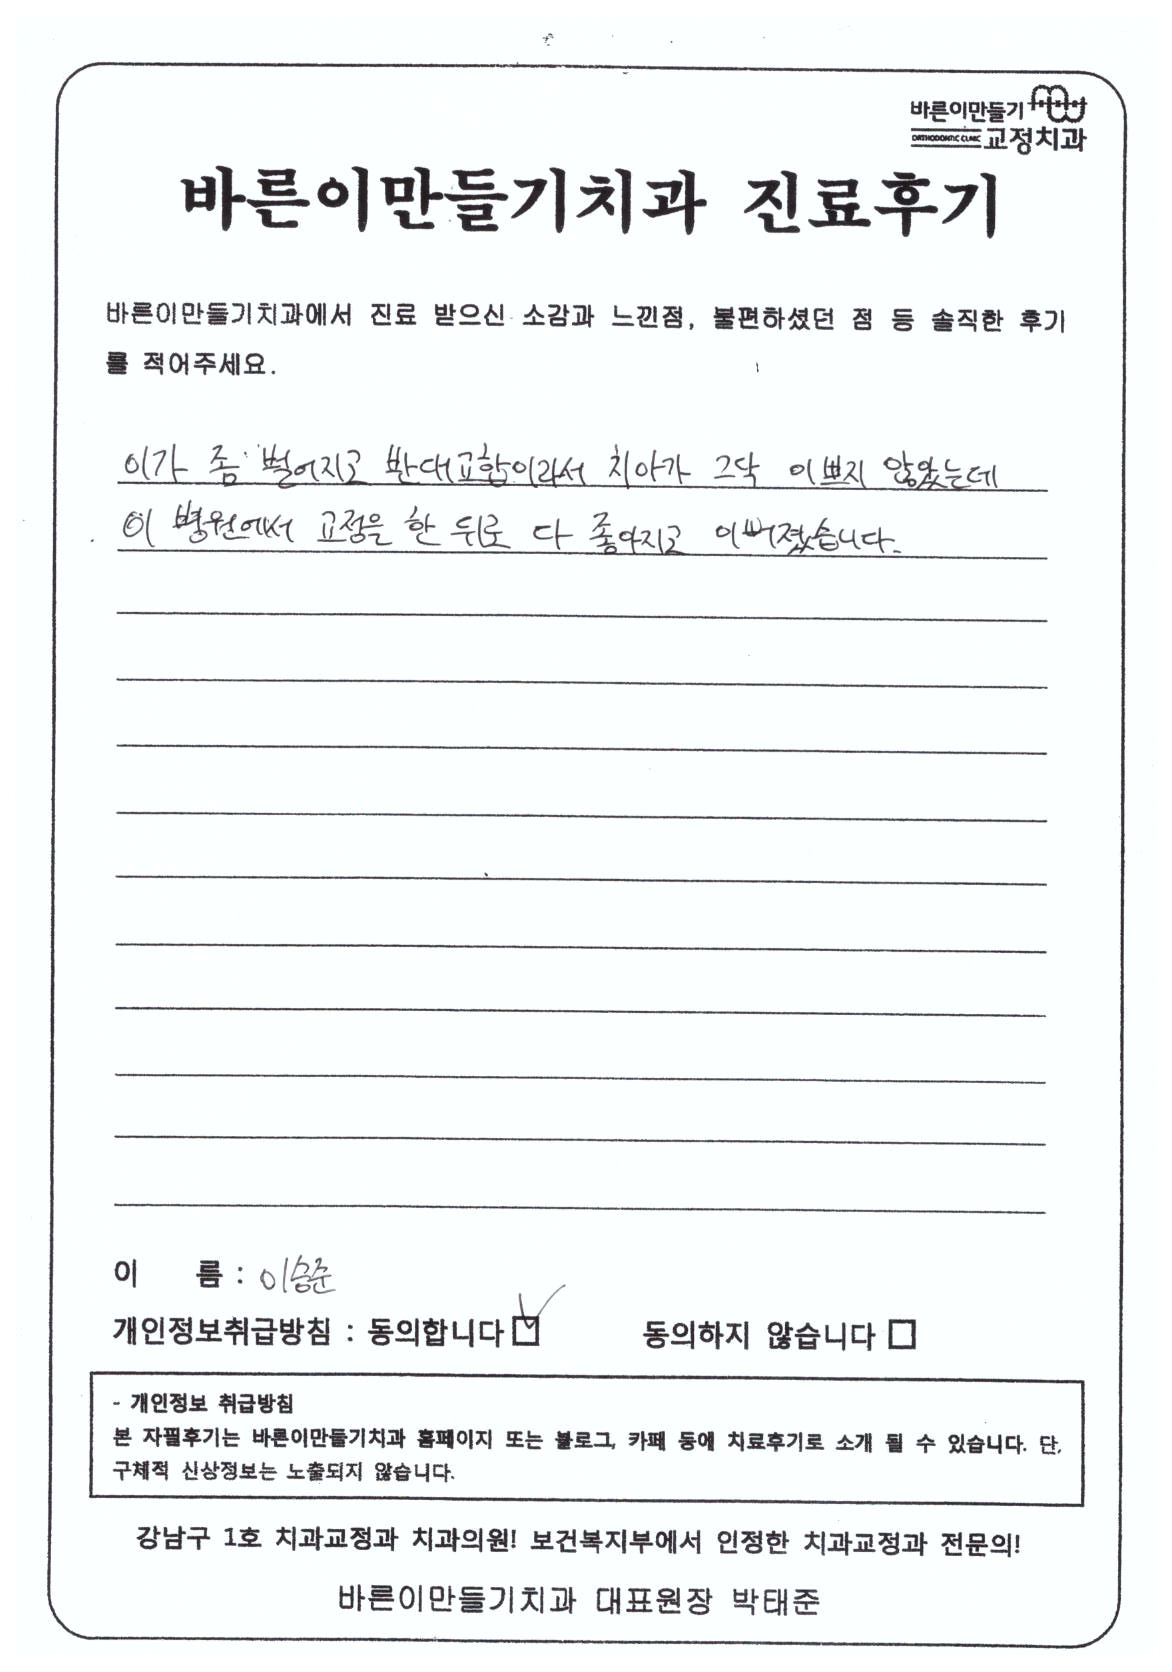 바른이만들기
ORTHODONTIC CLINIC 교정치과
바른이만들기치과 진료후기
바른이만들기치과에서 진료 받으신 소감과 느낀점, 불편하셨던 점 등 솔직한 후기
를 적어주세요.
이가 좀 벌어지고 반대교합이라서 치아가 그닥 이쁘지 않았는데
이 병원에서 교정을 한 뒤로 다 좋아지고 이뻐졌습니다.
이 름 : 이승준
개인정보취급방침 : 동의합니다 ☑ 동의하지 않습니다 □
- 개인정보 취급방침
본 자필후기는 바른이만들기치과 홈페이지 또는 블로그, 카페 등에 치료후기로 소개 될 수 있습니다. 단,
구체적 신상정보는 노출되지 않습니다.
강남구 1호 치과교정과 치과의원! 보건복지부에서 인정한 치과교정과 전문의!
바른이만들기치과 대표원장 박태준